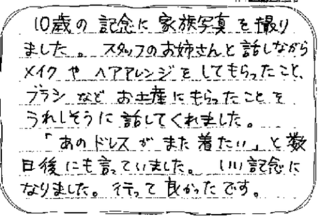 10歳の記念に家族写真を撮り
ました。スタッフのお姉さんと話しながら
メイクやヘアアレンジをしてもらったこと、
ブラシなどお土産にもらったことを
うれしそうに話してくれました。
「あのドレスがまた着たい」と数
日後にも言っていました。いい記念に
なりました。行って良かったです。